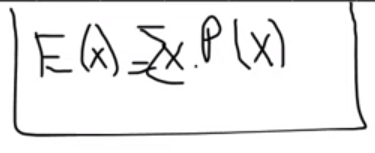 E(x)=Σx.P(x)